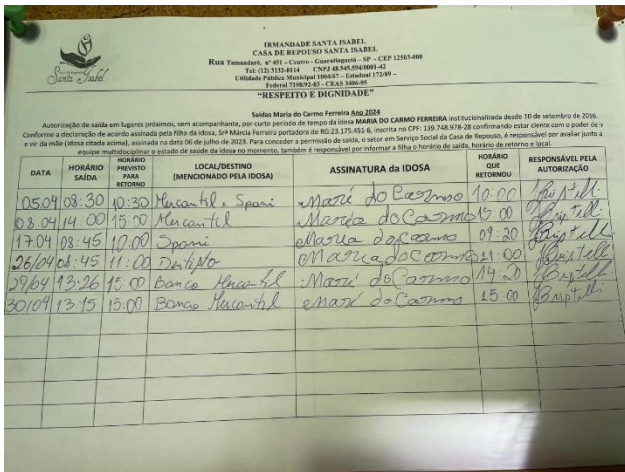 Santa Isabel
IRMANDADE SANTA ISABEL
CASA DE REPOUSO SANTA ISABEL
Rua Tamandaré, nº 451 – Centro - Guaratinguetá – SP - CEP 12503-000
Tel: (12) 3132-8114 CNPJ 48.545.594/0001-42
Utilidade Pública Municipal 1004/67 – Estadual 172/89 –
Federal 7198/92-83 - CEAS 3406-95
“RESPEITO E DIGNIDADE”
Saídas Maria do Carmo Ferreira Ano 2024
Autorização de saída em lugares próximos, sem acompanhante, por curto período de tempo da idosa MARIA DO CARMO FERREIRA institucionalizada desde 10 de setembro de 2016.
Conforme a declaração de acordo assinada pela filha da idosa, Srª Márcia Ferreira portadora do RG:23.175.451-6, inscrita no CPF: 139.748.978-28 confirmando estar ciente com o poder de ir
e vir da mãe (idosa citada acima), assinada na data 06 de julho de 2023. Para conceder a permissão de saída, o setor em Serviço Social da Casa de Repouso, é responsável por avaliar junto a
equipe multidisciplinar o estado de saúde da idosa no momento, também é responsável por informar a filha o horário de saída, horário de retorno e local.
DATA HORÁRIO SAÍDA HORÁRIO PREVISTO PARA RETORNO LOCAL/DESTINO (MENCIONADO PELA IDOSA) ASSINATURA da IDOSA HORÁRIO QUE RETORNOU RESPONSÁVEL PELA AUTORIZAÇÃO
05.04 08:30 10:30 Mercantil e Spani Maria do Carmo 10:00
08.04 14:00 15:00 Mercantil Maria do Carmo 15:00
17.04 08:45 10:00 Spani Maria do Carmo 09:20
26/04 08:45 11:00 Dentista Maria do Carmo 11:00
29/04 13:26 15:00 Banco Mercantil Maria do Carmo 14:20
30/04 13:15 15:00 Banco Mercantil Maria do Carmo 15:00